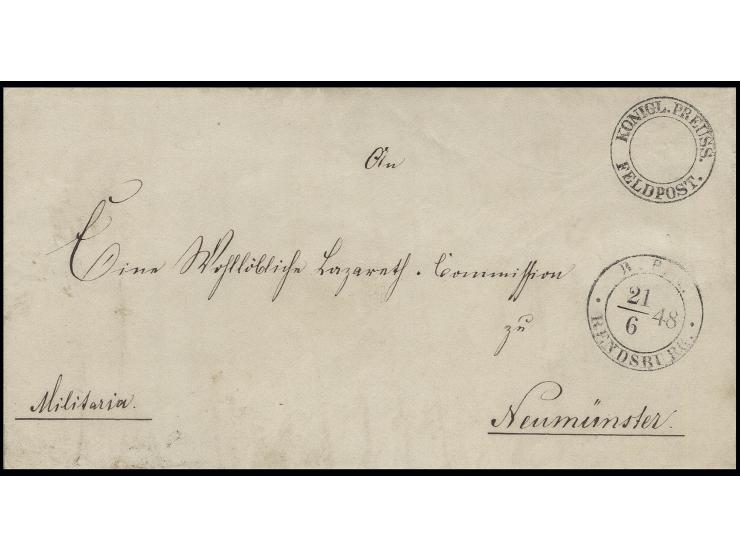 KÖNIGL. PREUSS.
FELDPOST.
An
Eine Wohllöbliche Lazareth-Commission
zu
21
6 48
RENDSBURG.
Militaria.
Neumünster.